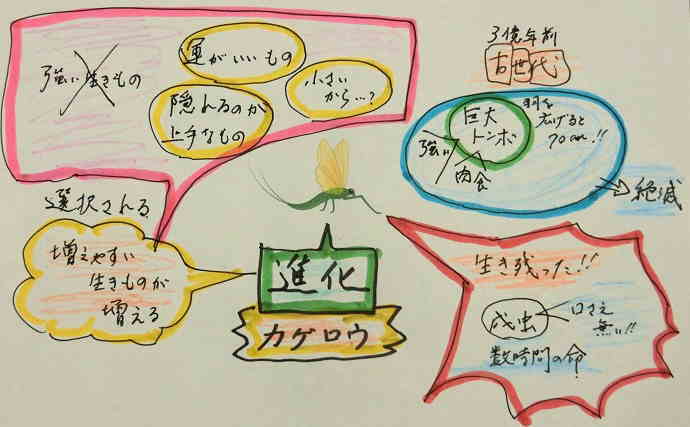 強い生きもの
運がいいもの
小さい
から…?
隠れるのが
上手なもの
選択される
増えやすい
生きものが
増える
進化
カゲロウ
3億年前
古世代
巨大
トンボ
強い
肉食
羽を
広げると
70cm!!
絶滅
生き残った!!
成虫
口さえ
無い!!
数時間の命